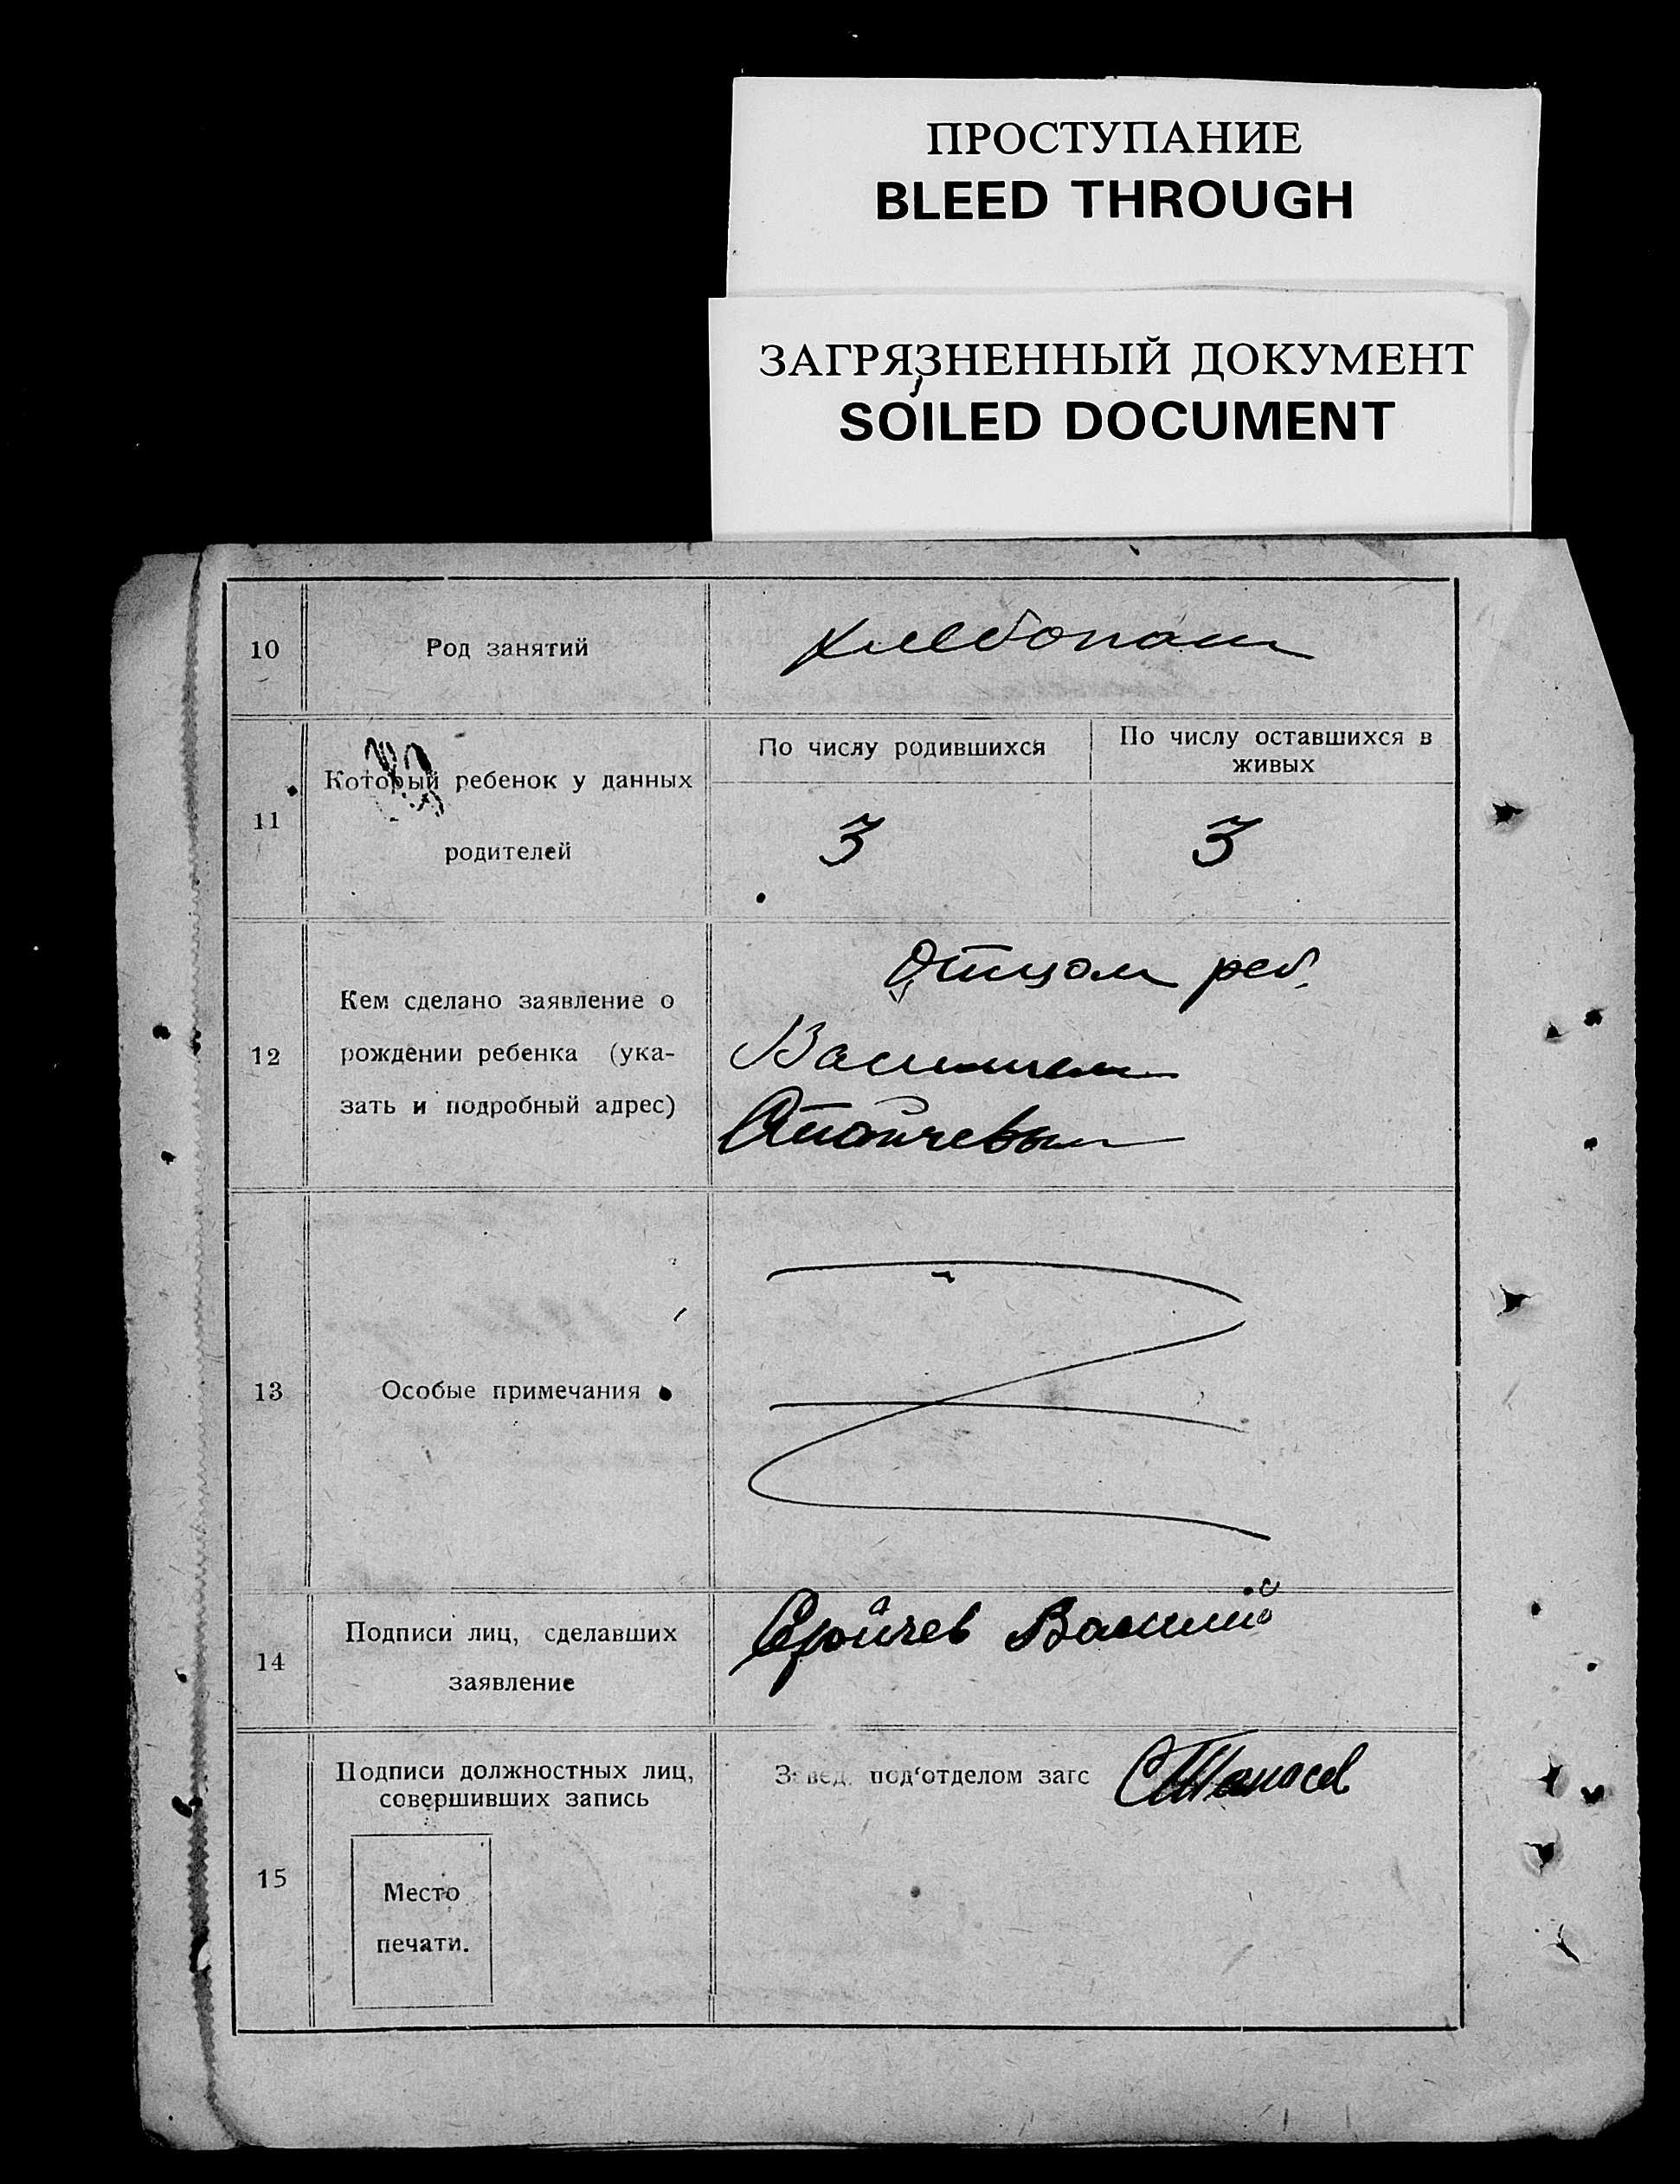 ПРОСТУПАНИЕ
BLEED THROUGH
ЗАГРЯЗНЕННЫЙ ДОКУМЕНТ
SOILED DOCUMENT
10 Род занятий хлебопаш
11 Который ребенок у данных
родителей
По числу родившихся По числу оставшихся в
живых
3 3
12 Кем сделано заявление о
рождении ребенка (ука-
зать и подробный адрес)
Отцом реб.
Василием
Стойчевым
13 Особые примечания
14 Подписи лиц, сделавших
заявление
Стойчев Василий
15 Подписи должностных лиц,
совершивших запись
Место
печати.
Завед. под‘отделом загс